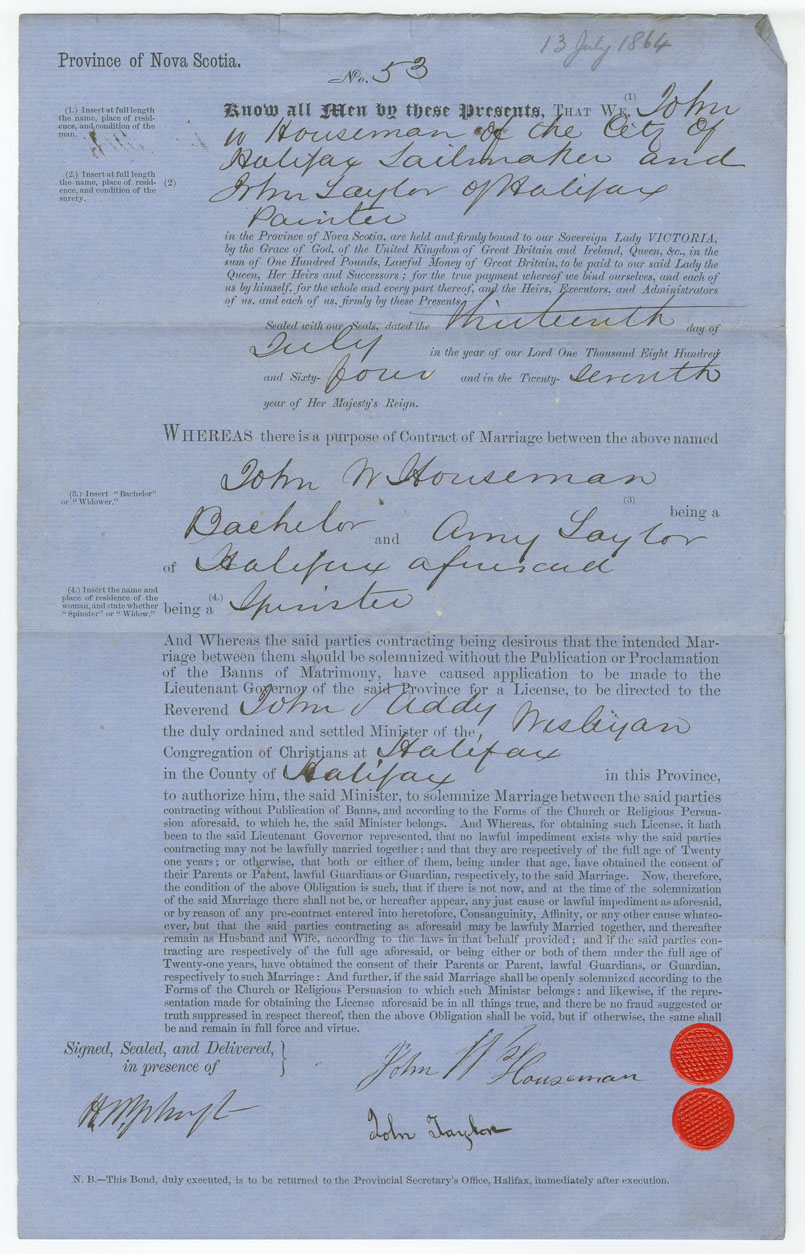 13 July 1864
Province of Nova Scotia.
No. 53
(1.) Insert at full length
the name, place of resid-
ence, and condition of the
man.
(2.) Insert at full length
the name, place of resid-
ence, and condition of the
surety.
(1)
Know all Men by these Presents, THAT WE, John
W Houseman of the City of
Halifax Sailmaker and
(2) John Taylor of Halifax
Painter
in the Province of Nova Scotia, are held and firmly bound to our Sovereign Lady VICTORIA,
by the Grace of God, of the United Kingdom of Great Britain and Ireland, Queen, &c., in the
sum of One Hundred Pounds, Lawful Money of Great Britain, to be paid to our said Lady the
Queen, Her Heirs and Successors; for the true payment whereof we bind ourselves, and each of
us by himself, for the whole and every part thereof, and the Heirs, Executors, and Administrators
of us, and each of us, firmly by these Presents.
Sealed with our Seals, dated the Thirteenth day of
July in the year of our Lord One Thousand Eight Hundred
and Sixty- four and in the Twenty- Seventh
year of Her Majesty's Reign.
WHEREAS there is a purpose of Contract of Marriage between the above named
John W Houseman
(3.) Insert "Bachelor"
or "Widower."
(3) being a
Bachelor and Amy Taylor
of Halifax aforesaid
(4.) Insert the name and
place of residence of the
woman, and state whether
"Spinster" or "Widow."
being a (4.) Spinster
And Whereas the said parties contracting being desirous that the intended Mar-
riage between them should be solemnized without the Publication or Proclamation
of the Banns of Matrimony, have caused application to be made to the
Lieutenant Governor of the said Province for a License, to be directed to the
Reverend John Addy
the duly ordained and settled Minister of the, Wesleyan
Congregation of Christians at Halifax
in the County of Halifax in this Province,
to authorize him, the said Minister, to solemnize Marriage between the said parties
contracting without Publication of Banns, and according to the Forms of the Church or Religious Persua-
sion aforesaid, to which he, the said Minister belongs. And Whereas, for obtaining such License, it hath
been to the said Lieutenant Governor represented, that no lawful impediment exists why the said parties
contracting may not be lawfully married together; and that they are respectively of the full age of Twenty
one years; or otherwise, that both or either of them, being under that age, have obtained the consent of
their Parents or Parent, lawful Guardians or Guardian, respectively, to the said Marriage. Now, therefore,
the condition of the above Obligation is such, that if there is not now, and at the time of the solemnization
of the said Marriage there shall not be, or hereafter appear, any just cause or lawful impediment as aforesaid,
or by reason of any pre-contract entered into heretofore, Consanguinity, Affinity, or any other cause whatso-
ever, but that the said parties contracting as aforesaid may be lawfuly Married together, and thereafter
remain as Husband and Wife, according to the laws in that behalf provided; and if the said parties con-
tracting are respectively of the full age aforesaid, or being either or both of them under the full age of
Twenty-one years, have obtained the consent of their Parents or Parent, lawful Guardians, or Guardian,
respectively to such Marriage: And further, if the said Marriage shall be openly solemnized according to the
Forms of the Church or Religious Persuasion to which such Minister belongs: and likewise, if the repre-
sentation made for obtaining the License aforesaid be in all things true, and there be no fraud suggested or
truth suppressed in respect thereof, then the above Obligation shall be void, but if otherwise, the same shall
be and remain in full force and virtue.
Signed, Sealed, and Delivered,
in presence of
John W Houseman
John Taylor
N. B.—This Bond, duly executed, is to be returned to the Provincial Secretary's Office, Halifax, immediately after execution.